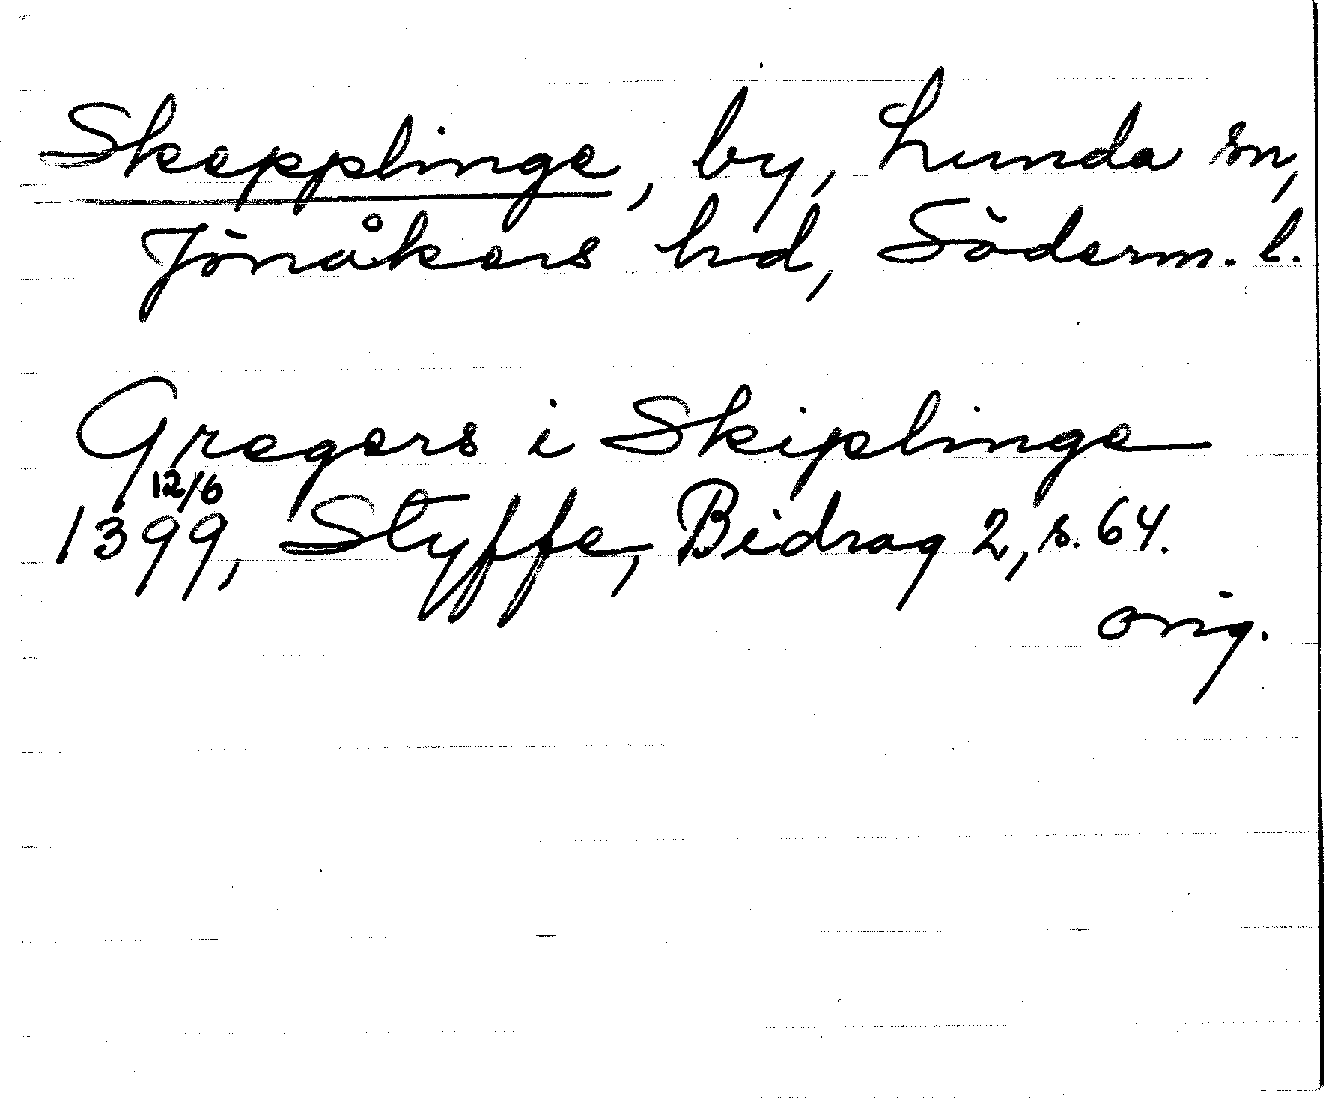 Skepplinge, by, Lunda sn,
Jönåkers hd, Söderm. l.
Gregers i Skiplinge
12/6
1399, Styffe, Bidrag 2, s. 64.
orig.